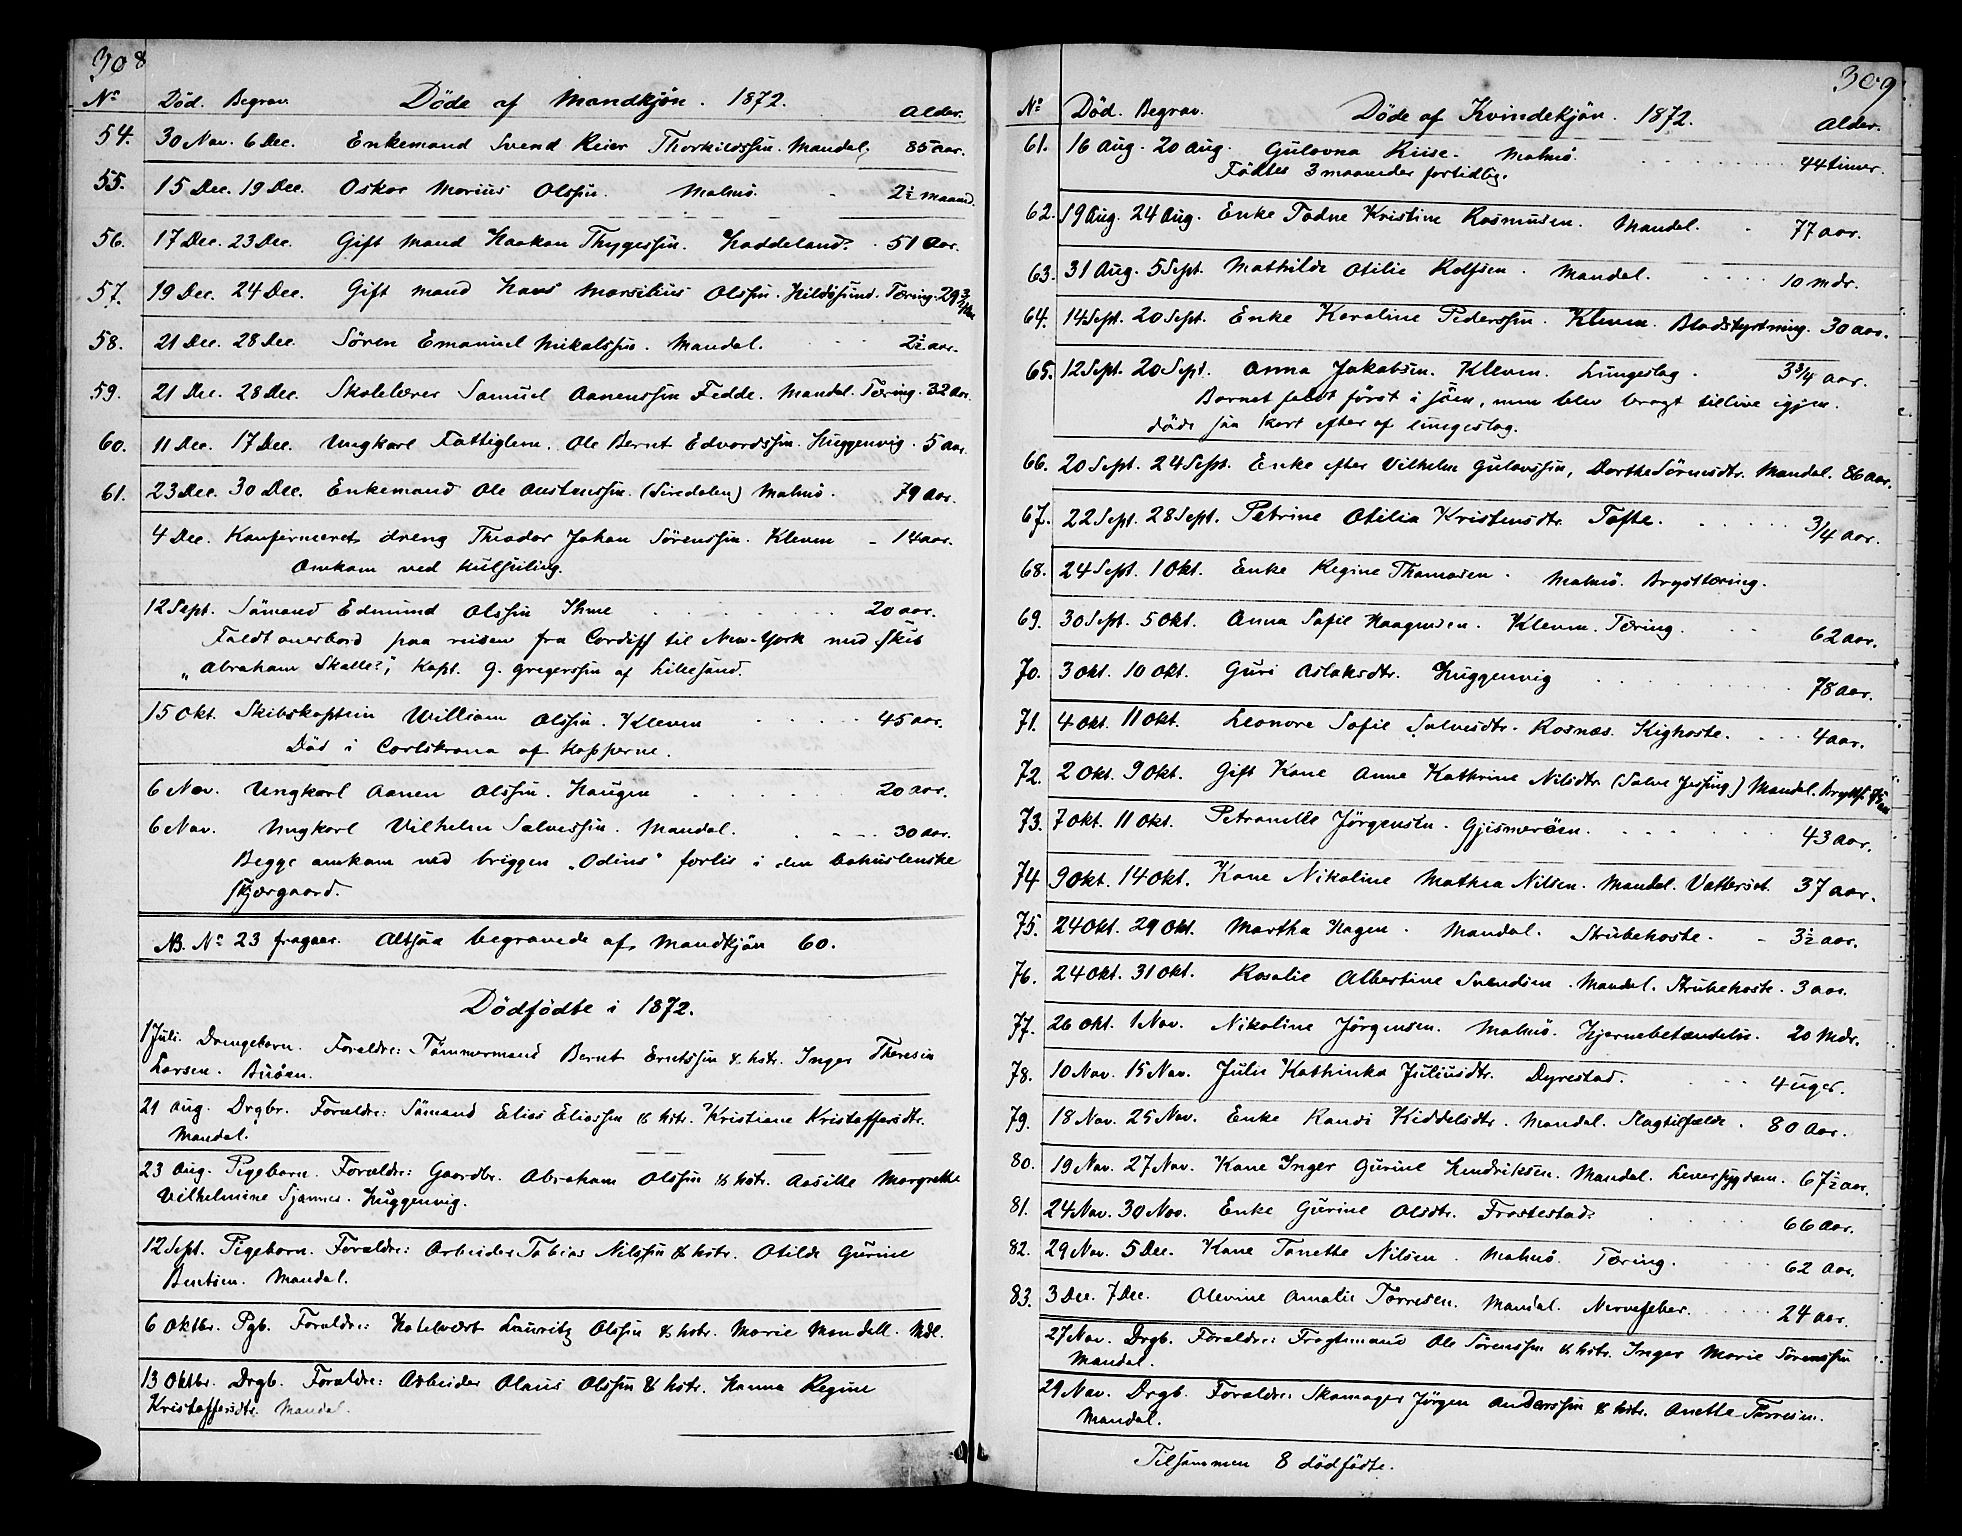 308
No Död. Begrav. Döde af Mandkjön. 1872. Alder.
54. 30 Nov. 6 Dec. Enkemand Svend Reier Thorkildssen. Mandal. 85 aar.
55. 15 Dec. 19 Dec. Oskar Marius Olssen. Malmö. 2½ maaned.
56. 17 Dec. 23 Dec. Gift Mand Haakon Thygessen. Haddeland. 51 Aar.
57. 19 Dec. 24 Dec. Gift Mand Hans Marselius Olssen. Hildösund. Tæring. 29¾ Aar
58. 21 Dec. 28 Dec. Sören Emanuel Mikalssen. Mandal. 2½ aar.
59. 21 Dec. 28 Dec. Skolelærer Samuel Aanenssen Fedde. Mandal. Tæring. 32 Aar.
60. 11 Dec. 17 Dec. Ungkarl Fattiglem. Ole Bernt Edvardssen. Huggenvig. 5 Aar.
61. 23 Dec. 30 Dec. Enkemand Ole Austenssen (Siredalen) Malmö. 79 Aar.
4 Dec. Konfirmeret dreng Theodor Johan Sörenssen. Kleven 14 aar.
Omkom ved kulseiling.
12 Sept. Sömand Edmund Olssen Ihme 20 aar.
Faldt overbord paa reisen fra Cardiff til New-York med Skib
„Abraham Skalle", Kapt. G. Gregerssen af Lillesand.
15 Okt. Skibskaptein William Olssen. Kleven 45 aar.
Död i Carlskrona af Kopperne.
6 Nov. Ungkarl Aanen Olssen. Haugen 20 aar.
6 Nov. Ungkarl Vilhelm Salvessen. Mandal. 30 Aar.
Begge omkom ved briggen „Odins" forlis i den bohuslenske
skjærgaard.
NB. No 23 fragaar. Altsaa begravede af Mandkjön 60.
Dödfödte i 1872.
1 Juli. Drengebarn. Forældre: Tömmermand Bernt Erntssen & hstr. Inger Theresia
Larsen. Buöen.
21 Aug. Drgbr. Forældre: Sömand Elias Eliassen & hstr. Kristiane Kristoffersdtr.
Mandal.
23 Aug. Pigebarn. Forældre: Gaardbr. Abraham Olssen & hstr. Aasille Margrethe
Vilhelmine Sjannes. Huggenvig.
12 Sept. Pigebarn. Forældre: Arbeider Tobias Nilssen & hstr. Otilde Gurine
Berntsen. Mandal.
6 Oktbr. Pgb. Forældre: Hotelvært Lauritz Olssen & hstr. Marie Mandell. Mdl.
13 Oktbr. Drgb. Forældre: Arbeider Olaus Olssen & hstr. Hanna Regine
Kristoffersdtr. Mandal.
309.
No Död. Begrav. Döde af Kvindekjön. 1872. Alder.
61. 16 Aug. 20 Aug. Gulovna Riise. Malmö. 44 timer.
Födtes 3 maaneder fortidlig.
62. 19 Aug. 24 Aug. Enke Todne Kristine Rasmusen. Mandal. 77 aar.
63. 31 Aug. 5 Sept. Mathilde Otilie Rolfsen. Mandal. 10 Mdr.
64. 14 Sept. 20 Sept. Enke Karoline Pederssen. Kleven. Blodstyrtning. 30 aar.
65. 12 Sept. 20 Sept. Anna Jakobsen. Kleven. Lungeslag. 3¾ aar.
Barnet faldt först i söen, men blev bragt tillive igjen.
döde saa kort efter af lungeslag.
66. 20 Sept. 24 Sept. Enke efter Vilhelm Gulovssen, Dorthe Sörensdtr. Mandal. 86 aar.
67. 22 Sept. 28 Sept. Petrine Otilia Kristensdtr. Tofte. 3/4 Aar.
68. 24 Sept. 1 Okt. Enke Regine Thomasen. Malmö. Brysttæring.
69. 30 Sept. 5 Okt. Anna Sofie Haagensen. Kleven. Tæring. 62 aar.
70. 3 Okt. 10 Okt. Guri Aslaksdtr. Huggenvig 78 aar.
71. 4 Okt. 11 Okt. Leonore Sofie Salvesdtr. Rosnæs. Kighoste. 4 aar.
72. 2 Okt. 9 Okt. Gift Kone Anne Kathrine Nilsdtr. (Salve Jessing) Mandal.
73. 7 Okt. 11 Okt. Petronelle Jörgensen. Gjismeröen. 43 aar.
74 9 Okt. 14 Okt. Kone Nikoline Mathea Nilsen. Mandal. Vattersot. 37 aar.
75. 24 Okt. 29 Okt. Martha Hagen. Mandal. Strubehoste. 3½ aar.
76. 24 Okt. 31 Okt. Rosalie Albertine Svendsen. Mandal. Strubehoste. 3 aar.
77. 26 Okt. 1 Nov. Nikoline Jörgensen. Malmö. Hjernebetændelse. 20 Mdr.
78. 10 Nov. 15 Nov. Julie Kathinka Juliusdtr. Dyrestad. 4 uger.
79. 18 Nov. 25 Nov. Enke Randi Kiddelsdtr. Mandal. Slagtilfælde. 80 Aar.
80. 19 Nov. 27 Nov. Kone Inger Gurine Hendriksen. Mandal. Leversygdom. 67½ aar.
81. 24 Nov. 30 Nov. Enke Gurine Olsdtr. Frostestad. 66 Aar.
82. 29 Nov. 5 Dec. Kone Tonette Nilsen. Malmö. Tæring. 62 Aar.
83. 3 Dec. 7 Dec. Olevine Amalie Torresen. Mandal. Nervefeber. 24 aar.
27 Nov. Drgb. Forældre: Fragtemand Ole Sörenssen & hstr. Inger Marie Sörenssen
Mandal.
29 Nov. Drgb. Forældre: Skomager Jörgen Anderssen & hstr. Anette Torresen.
Mandal.
Tilsammen 8 dödfödte.